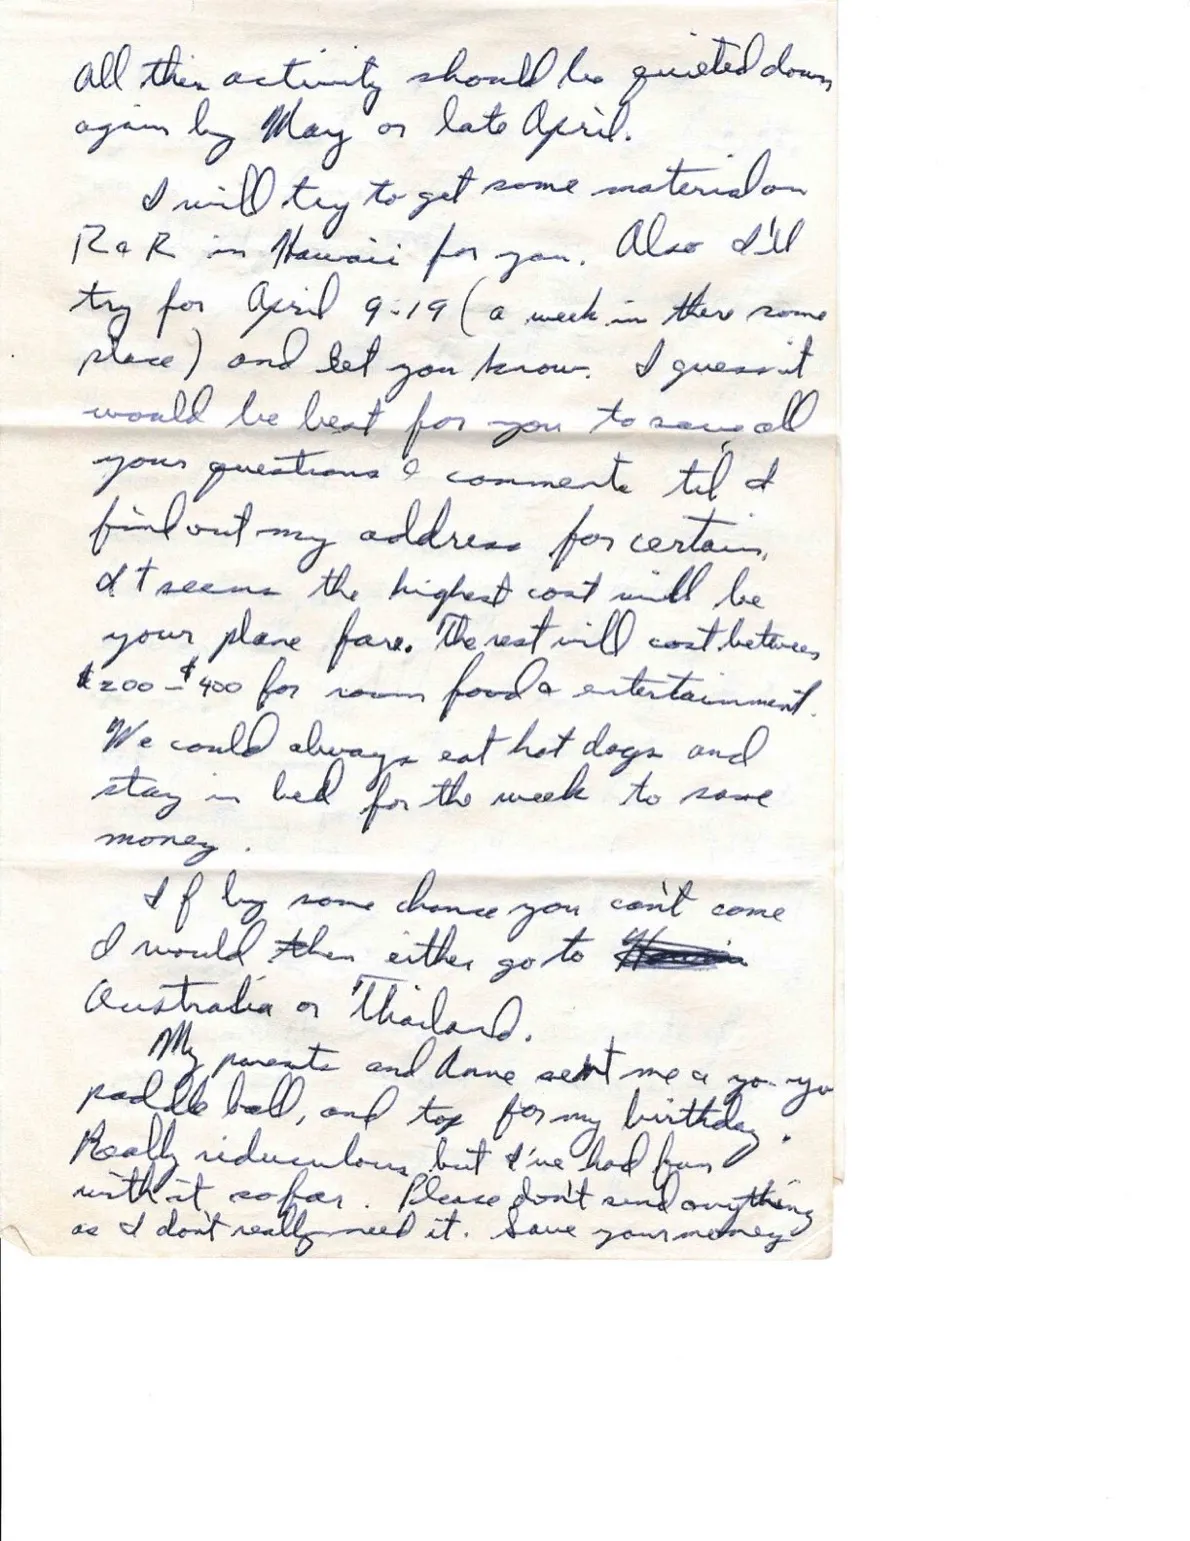 All this activity should be quieted down
again by May or late April.
I will try to get some material on
R & R in Hawaii for you. Also I'll
try for April 9-19 (a week in there some
place) and let you know. I guess it
would be best for you to save all
your questions & comments til I
find out my address for certain.
It seems the highest cost will be
your plane fare. The rest will cost between
$200 - $400 for room food & entertainment.
We could always eat hot dogs and
stay in bed for the week to save
money.
If by some chance you can't come
I would then either go to
Australia or Thailand.
My parents and Anne sent me a yo-yo
paddle ball, and top for my birthday.
Really rediculous but I've had fun
with it so far. Please don't send anything
as I don't really need it. Save your money